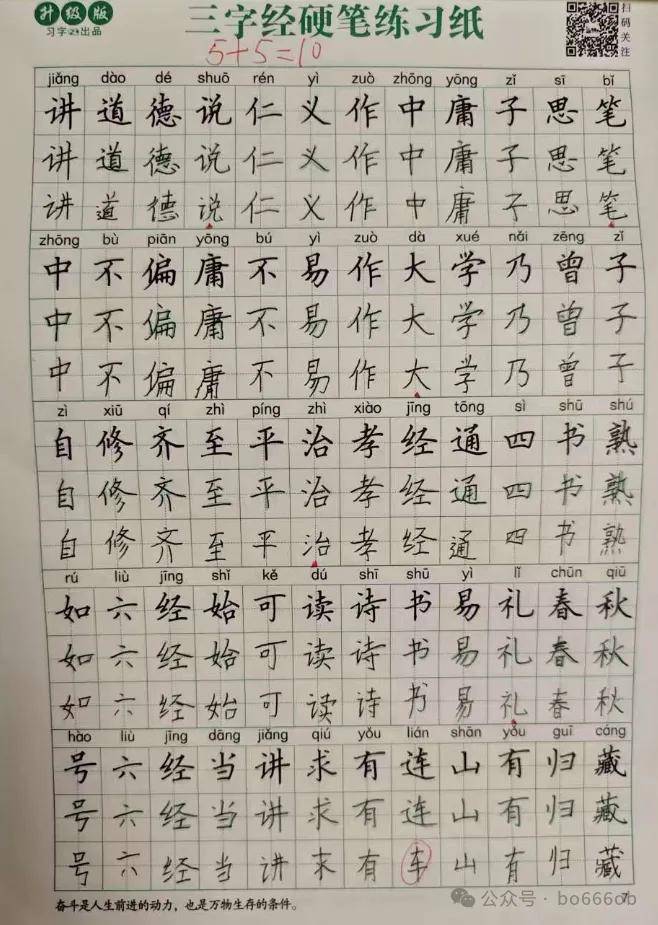 升级版
习字出品
三字经硬笔练习纸
扫码关注
5+5=10
jiǎng dào dé shuō rén yì zuò zhōng yōng zǐ sī bǐ
讲道德说仁义作中庸子思笔
讲道德说仁义作中庸子思笔
讲道德说仁义作中庸子思笔
zhōng bù piān yōng bú yì zuò dà xué nǎi zēng zǐ
中不偏庸不易作大学乃曾子
中不偏庸不易作大学乃曾子
中不偏庸不易作大学乃曾子
zì xiū qí zhì píng zhì xiào jīng tōng sì shū shú
自修齐至平治孝经通四书熟
自修齐至平治孝经通四书熟
自修齐至平治孝经通四书熟
rú liù jīng shǐ kě dú shī shū yì lǐ chūn qiū
如六经始可读诗书易礼春秋
如六经始可读诗书易礼春秋
如六经始可读诗书易礼春秋
hào liù jīng dāng jiǎng qiú yǒu lián shān yǒu guī cáng
号六经当讲求有连山有归藏
号六经当讲求有连山有归藏
号六经当讲求有车山有归藏
奋斗是人生前进的动力，也是万物生存的条件。
7
公众号·bo666ob